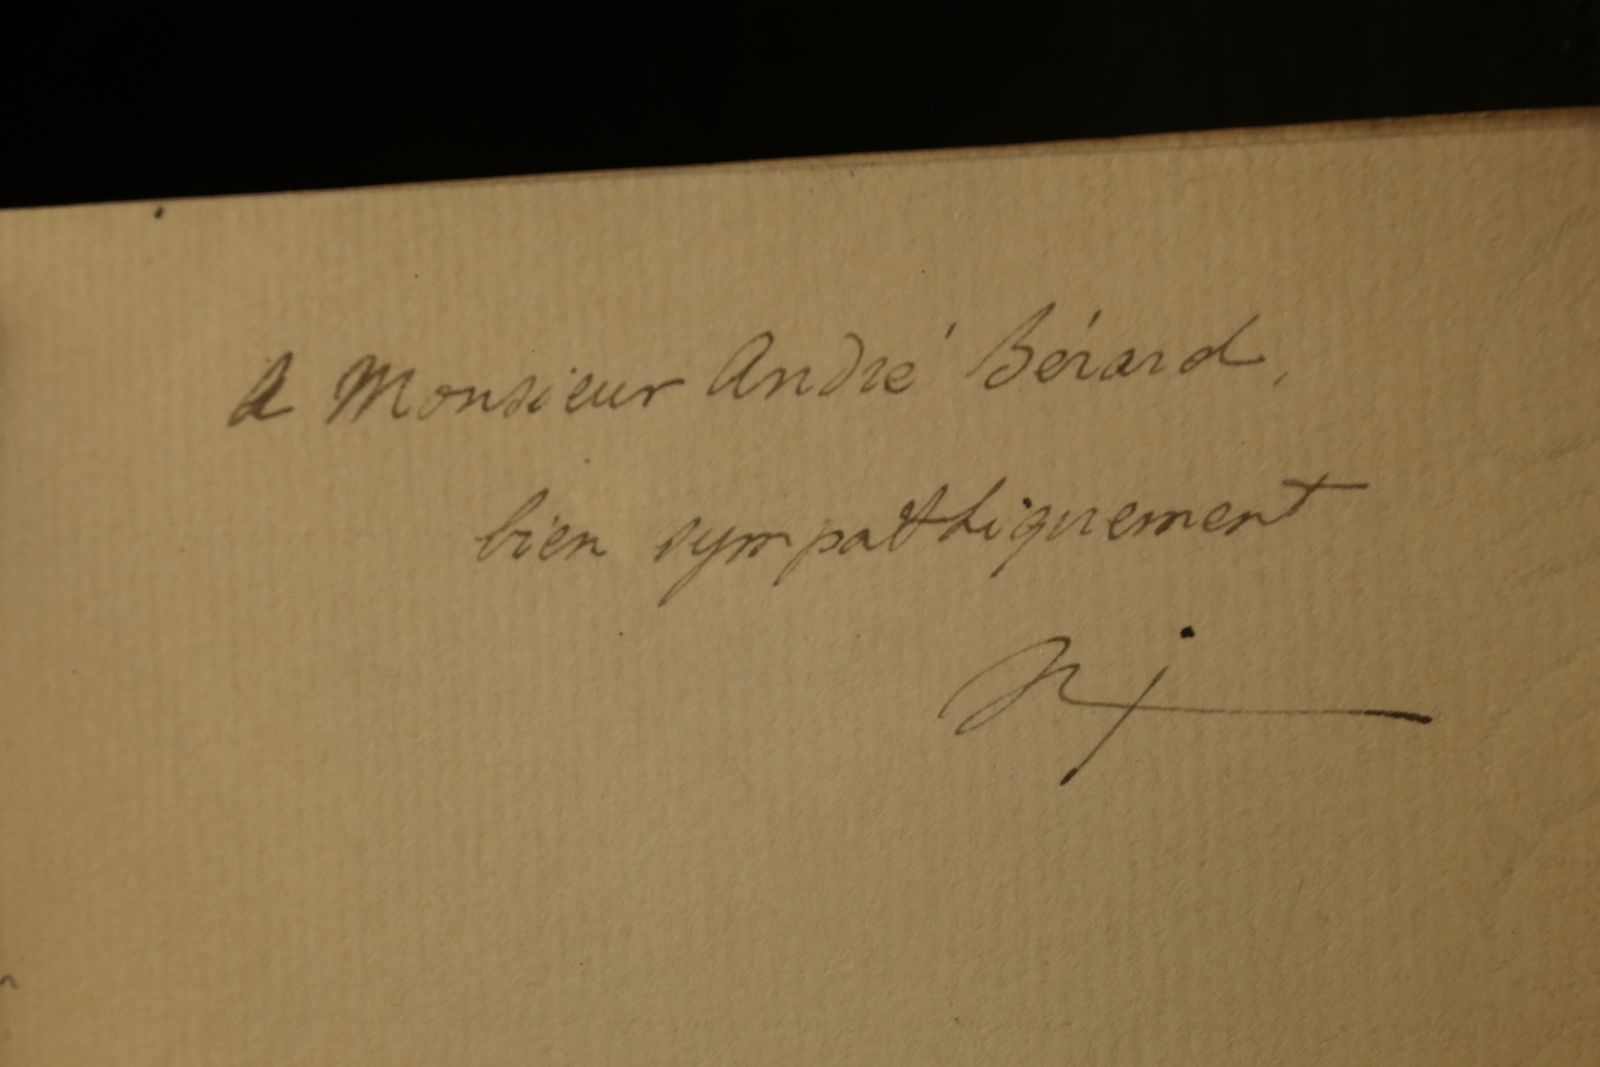 A Monsieur André Bérard,
bien sympathiquement